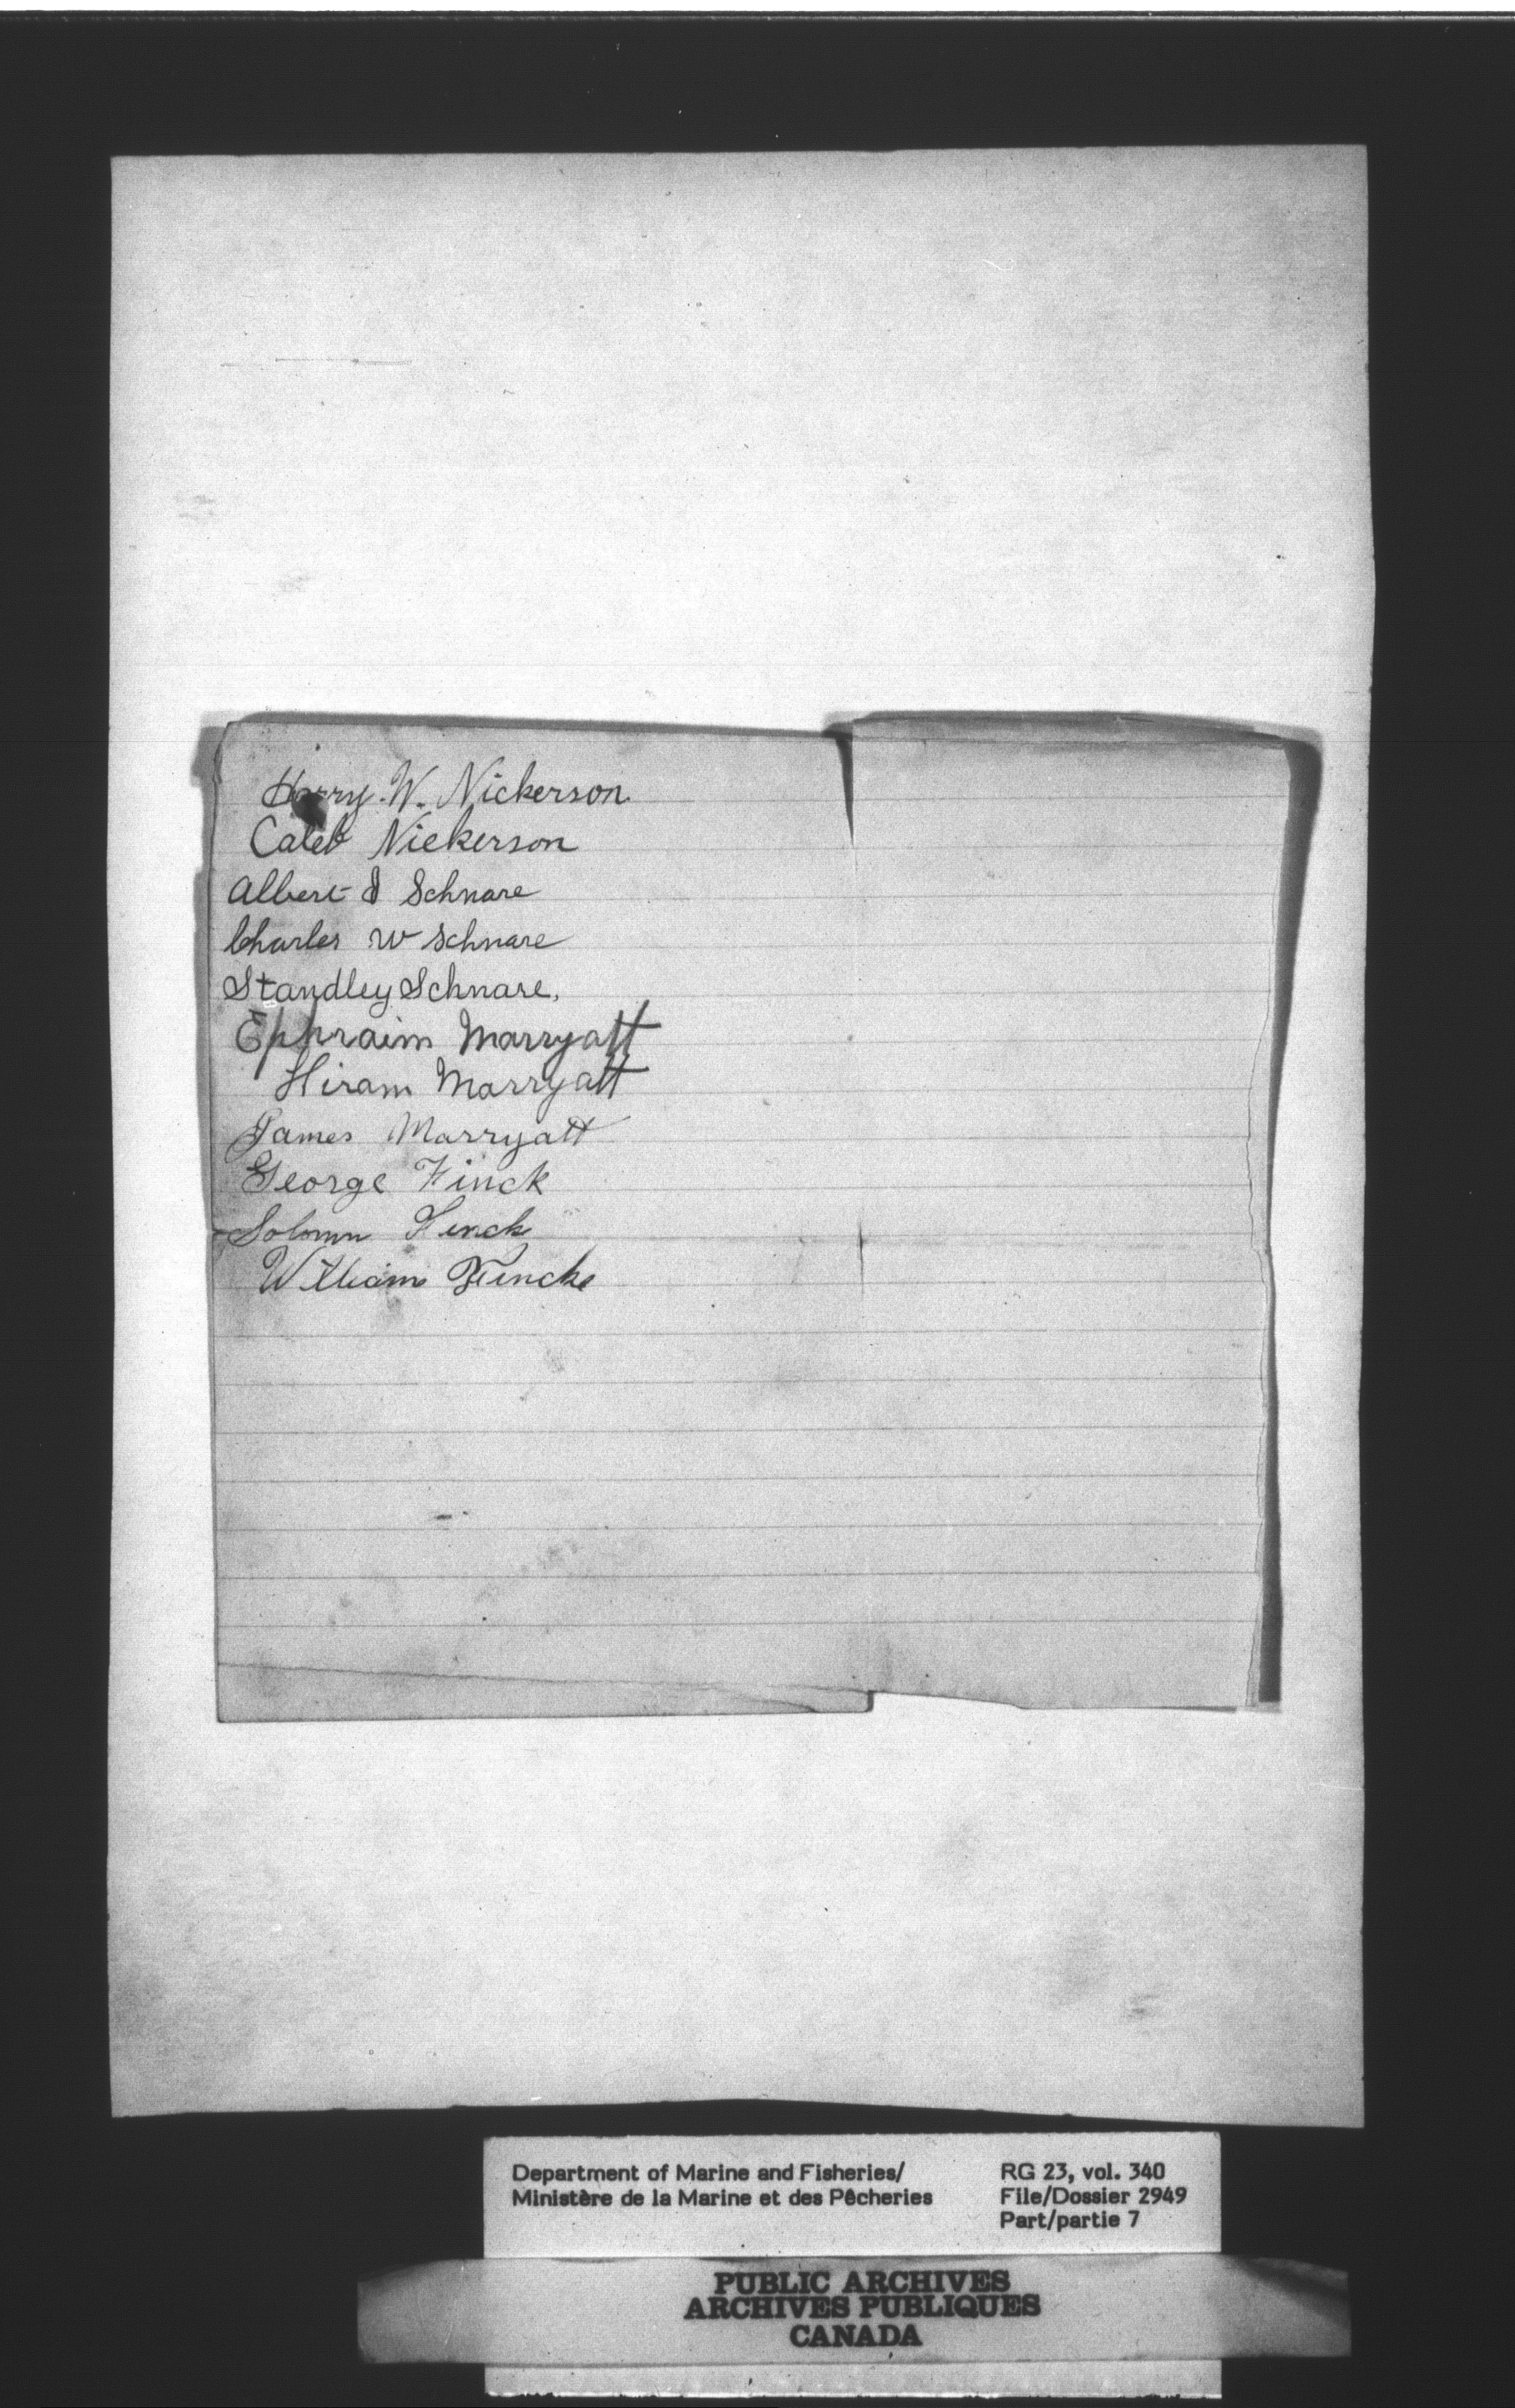 Harry. W. Nickerson.
Caleb Nickerson
Albert S Schnare
Charles W Schnare
Standley Schnare.
Ephraim Marryatt
Hiram Marryatt
James Marryatt
George Finck
Solomn Finck
William Fincke
Department of Marine and Fisheries/
Ministère de la Marine et des Pêcheries
RG 23, vol. 340
File/Dossier 2949
Part/partie 7
PUBLIC ARCHIVES
ARCHIVES PUBLIQUES
CANADA